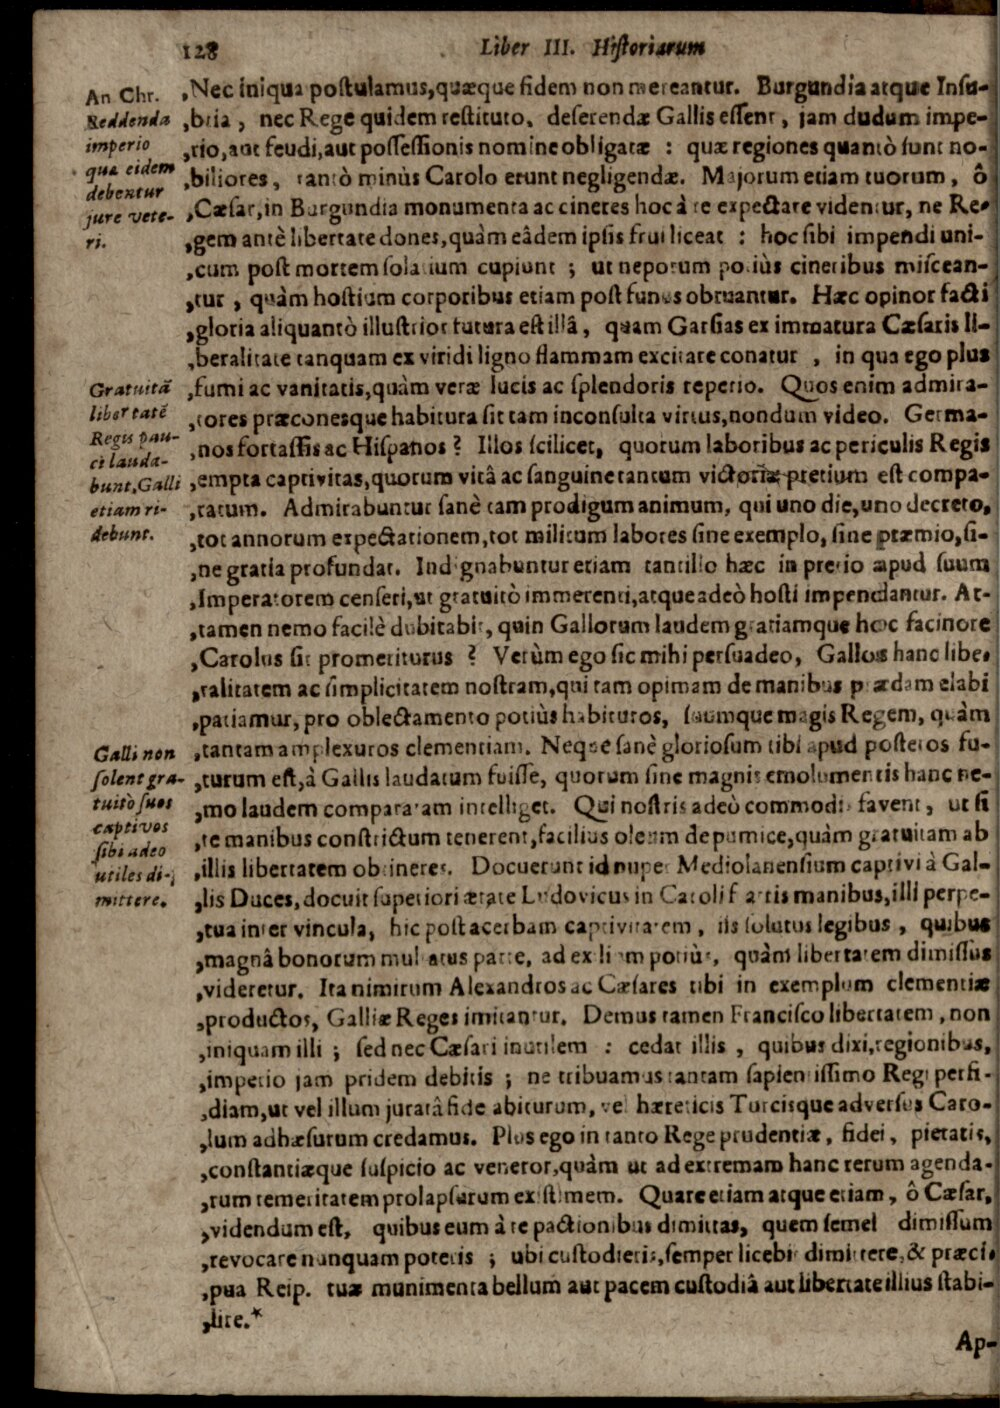 128 Liber III. Hiſtoriarum
An Chr.
Reddenda
imperio
quæ eidem
debentur
jure vete-
ri.
‚Nec iniqua poſtulamus,quæque fidem non mereantur. Burgundia atque Inſu-
‚bria , nec Rege quidem reſtituto, deſerendæ Gallis eſſent , jam dudum impe-
‚rio,aut feudi,aut poſſeſſionis nomine obligatæ : quæ regiones quantò ſunt no-
‚biliores , tantò minùs Carolo erunt negligendæ. Majorum etiam tuorum , ô
‚Cæſar,in Burgundia monumenta ac cineres hoc à te expectare videntur, ne Re-
‚gem antè libertate dones,quàm eâdem ipſis frui liceat : hoc ſibi impendi uni-
‚cum poſt mortem ſolatium cupiunt ; ut nepotum potiùs cineribus miſcean-
‚tur , quàm hoſtium corporibus etiam poſt funus obruantur. Hæc opinor facti
‚gloria aliquantò illuſtrior futura eſt illâ , quam Garſias ex immatura Cæſaris li-
‚beralitate tanquam ex viridi ligno flammam excitare conatur , in qua ego plus
Gratuitã
libertatẽ
Regis pau-
ci lauda-
bunt,Galli
etiam ri-
debunt.
‚fumi ac vanitatis,quàm veræ lucis ac ſplendoris reperio. Quos enim admira-
‚tores præconesque habitura ſit tam inconſulta virtus,nondum video. Germa-
‚nos fortaſſis ac Hiſpanos ? Illos ſcilicet, quorum laboribus ac periculis Regis
‚empta captivitas,quorum vitâ ac ſanguine tantum victoriæ pretium eſt compa-
‚ratum. Admirabuntur ſanè tam prodigum animum, qui uno die,uno decreto,
‚tot annorum expectationem,tot militum labores ſine exemplo, ſine præmio,ſi-
‚ne gratia profundat. Indignabuntur etiam tantillo hæc in precio apud ſuum
‚Imperatorem cenſeri,ut gratuitò immerenti,atque adeò hoſti impendantur. At-
‚tamen nemo facilè dubitabit, quin Gallorum laudem gratiamque hoc facinore
‚Carolus ſit promeriturus ? Verùm ego ſic mihi perſuadeo, Gallos hanc libe-
‚ralitatem ac ſimplicitatem noſtram,qui tam opimam de manibus prædam elabi
‚patiamur, pro oblectamento potiùs habituros, ſuumque magis Regem, quàm
Galli non
ſolent gra-
tuitò ſuos
captivos
ſibi adeo
utiles di-
mittere.
‚tantam amplexuros clementiam. Neque ſanè glorioſum tibi apud poſteros fu-
‚turum eſt,à Gallis laudatum fuiſſe, quorum ſine magnis emolumentis hanc ne-
‚mo laudem comparatam intelliget. Qui noſtris adeò commodis favent , ut ſi
‚te manibus conſtrictum tenerent,facilius oleum de pumice,quàm gratuitam ab
‚illis libertatem obtineres. Docuerunt id nuper Mediolanenſium captivi à Gal-
‚lis Duces,docuit ſuperiori ætate Ludovicus in Caroli fratris manibus,illi perpe-
‚tua inter vincula, hic poſt acerbam captivitatem , iis ſolutus legibus , quibus
‚magnâ bonorum mulctatus parte, ad exilium potiùs, quàm libertatem dimiſſus
‚videretur. Ita nimirum Alexandros ac Cæſares tibi in exemplum clementiæ
‚productos, Galliæ Reges imitantur. Demus tamen Franciſco libertatem , non
‚iniquam illi ; ſed nec Cæſari inutilem : cedat illis , quibus dixi,regionibus,
‚imperio jam pridem debitis ; ne tribuamus tantam ſapientiſſimo Regi perfi-
‚diam,ut vel illum juratâ fide abiturum, vel hæreticis Turcisque adverſus Caro-
‚lum adhæſurum credamus. Plus ego in tanto Rege prudentiæ , fidei , pietatis,
‚conſtantiæque ſuſpicio ac veneror,quàm ut ad extremam hanc rerum agenda-
‚rum temeritatem prolapſurum exiſtimem. Quare etiam atque etiam , ô Cæſar,
‚videndum eſt, quibus eum à te pactionibus dimittas, quem ſemel dimiſſum
‚revocare nunquam poteris ; ubi cuſtodieris,ſemper licebit dimittere,& præci-
‚pua Reip. tuæ munimenta bellum aut pacem cuſtodiâ aut libertate illius ſtabi-
‚lire.*
Ap-